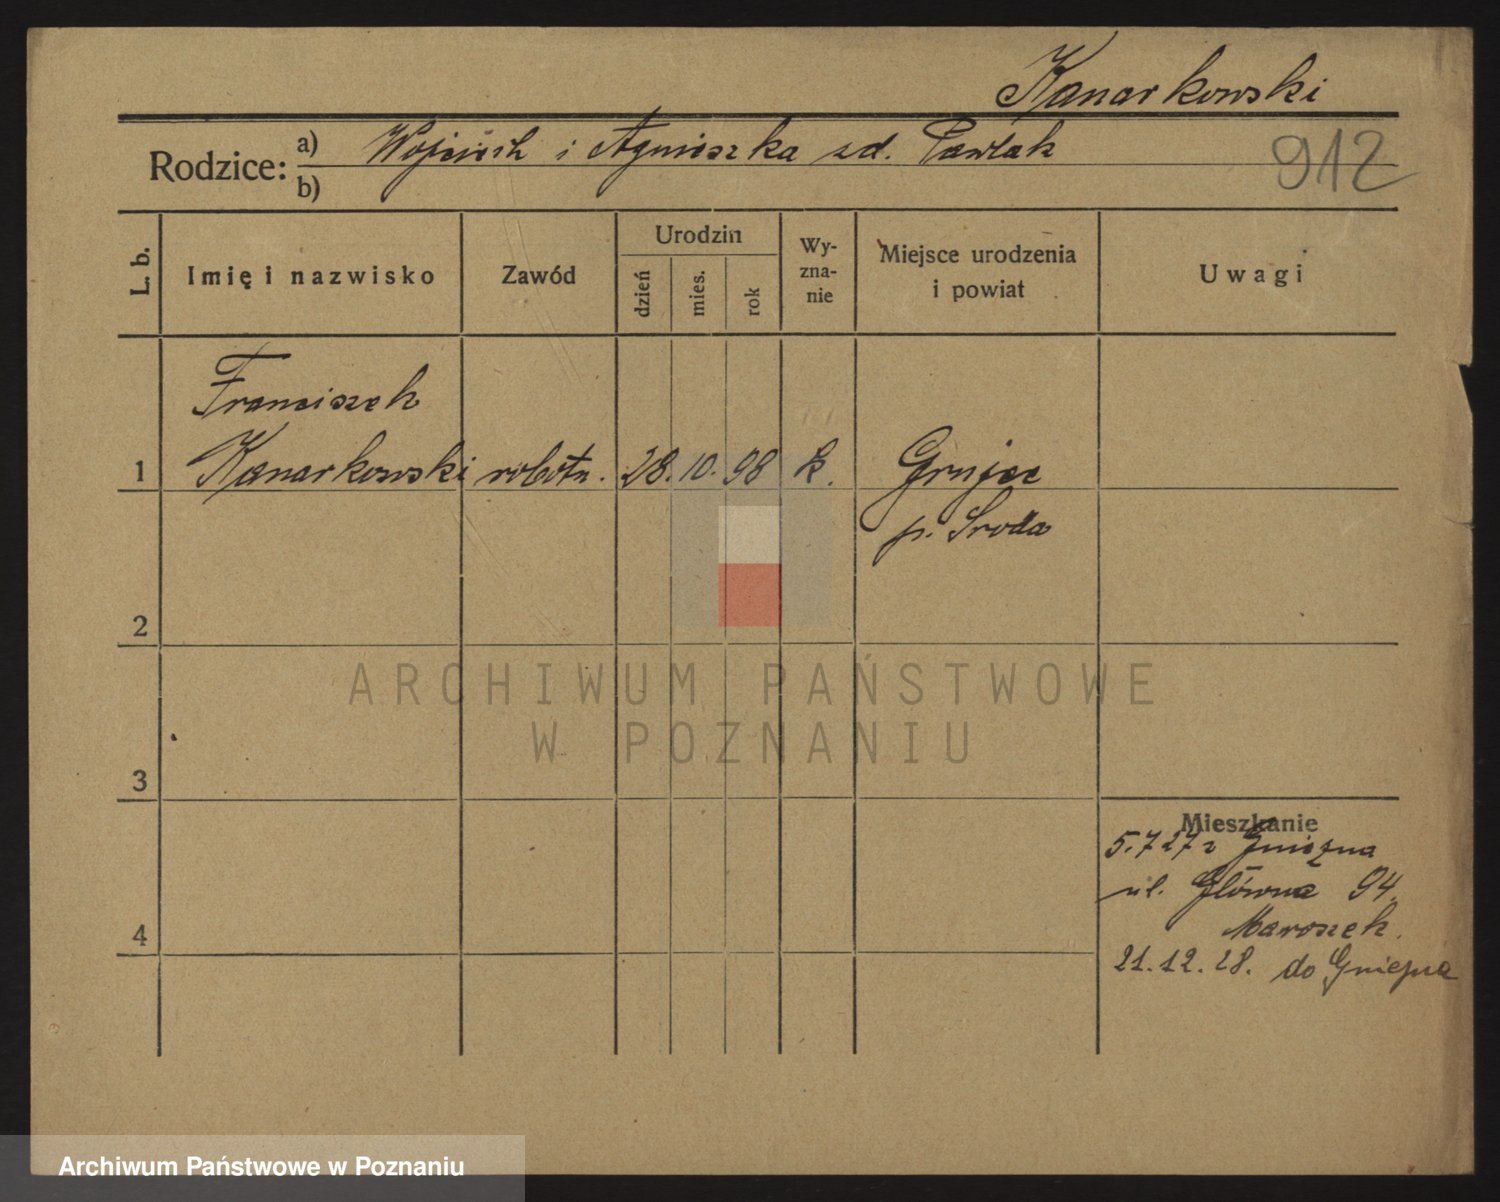 Kanarkowski
912
Rodzice: a) Wojciech i Agnieszka zd. Pawlak
b)
L. b.
Imię i nazwisko
Zawód
Urodzin
dzień
mies.
rok
Wy-
zna-
nie
Miejsce urodzenia
i powiat
Uwagi
Franciszek
1 Kanarkowski robotn. 28. 10. 98 k. Grujec
p. Sroda
2
3
4
ARCHIWUM PAŃSTWOWE
W POZNANIU
Mieszkanie
5.7 27 z Gniezna
ul. Główna 94.
Maroszek.
21.12.28. do Gniezna
Archiwum Państwowe w Poznaniu